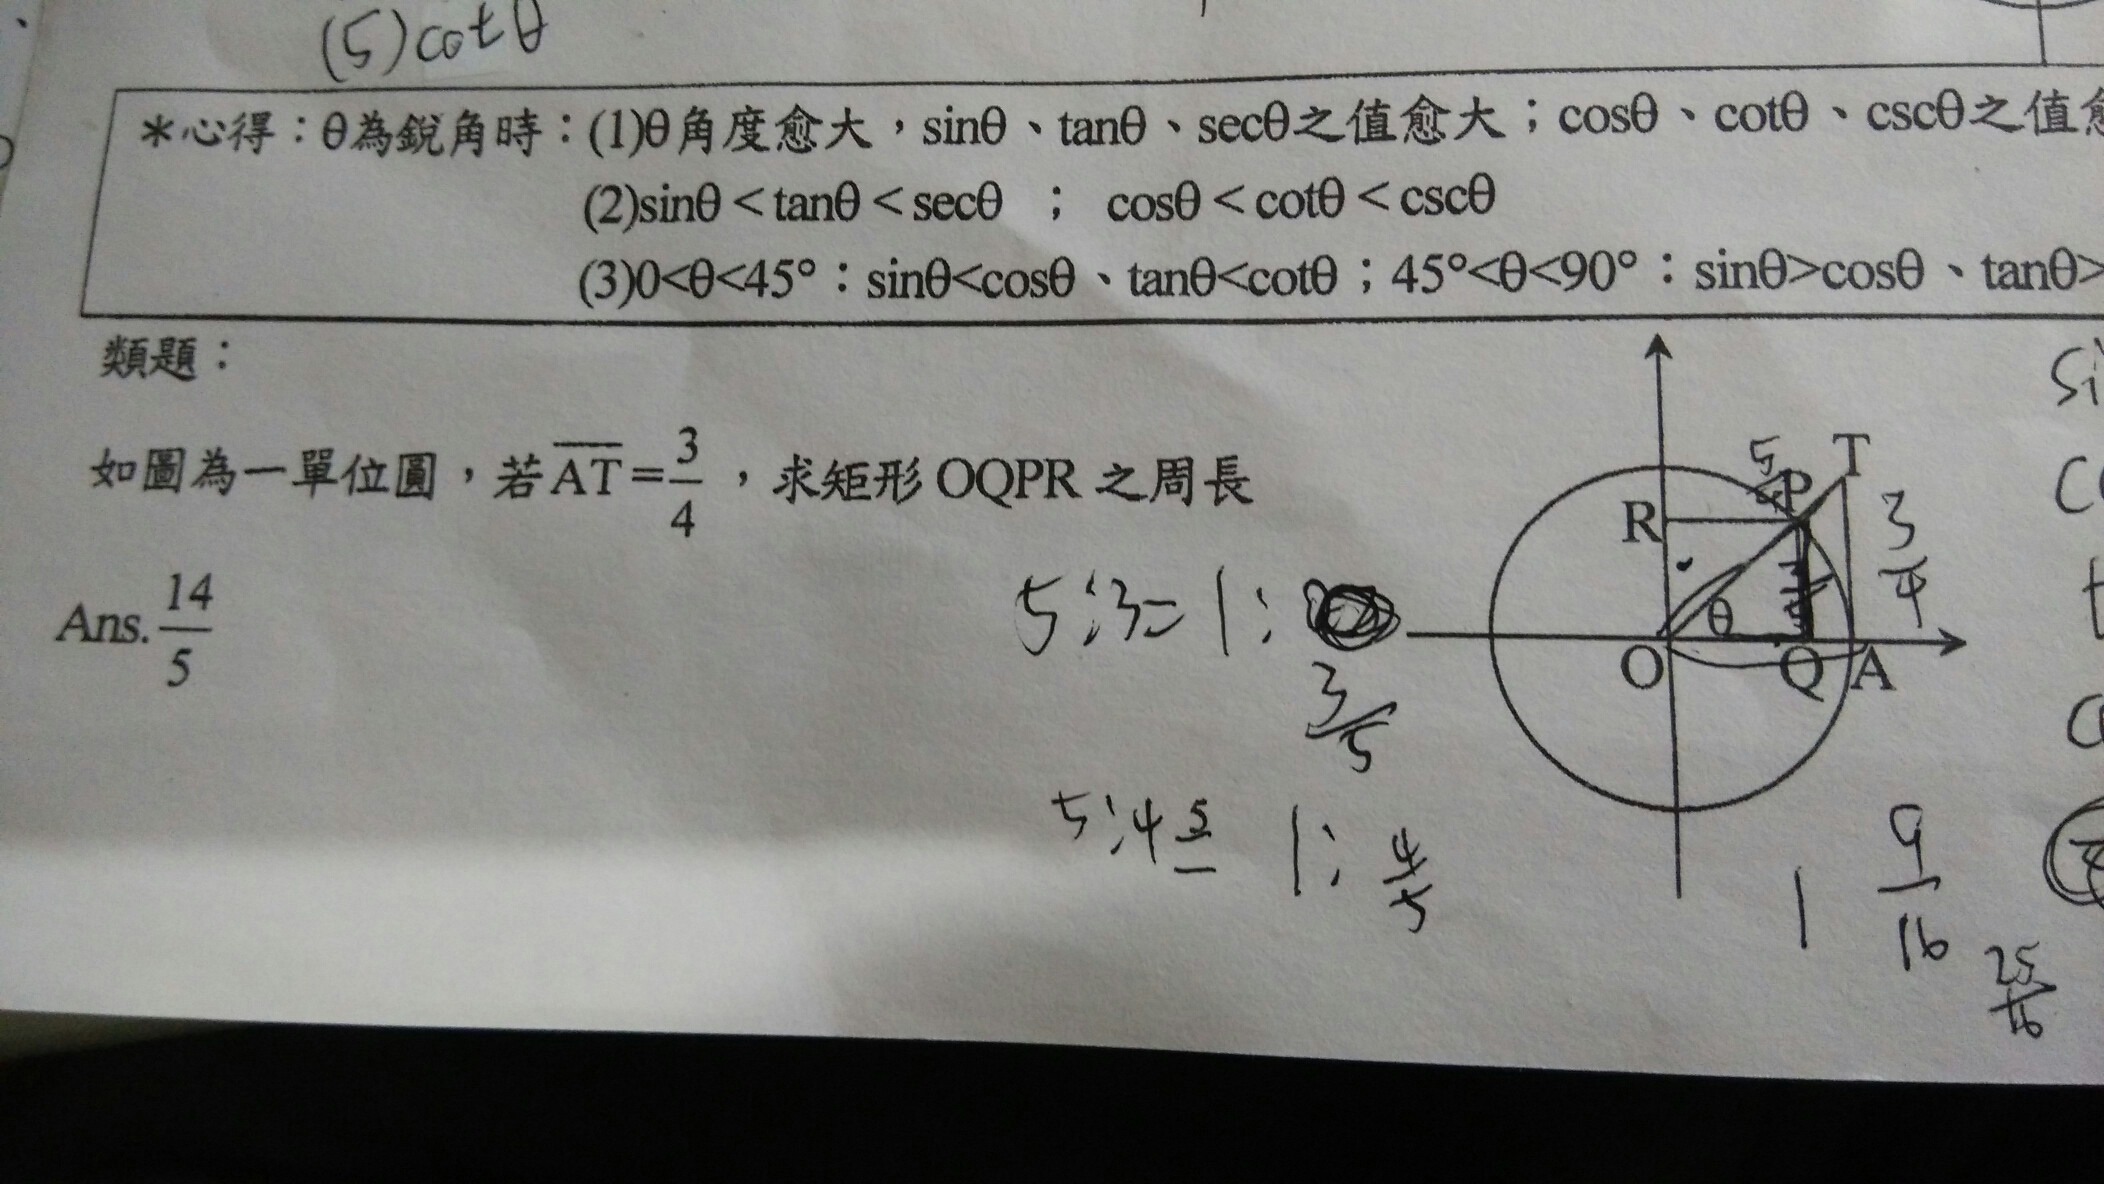 (5)cotθ
＊心得：θ為銳角時：(1)θ角度愈大，sinθ、tanθ、secθ之值愈大；cosθ、cotθ、cscθ之值愈
(2)sinθ＜tanθ＜secθ ； cosθ＜cotθ＜cscθ
(3)0<θ<45°：sinθ<cosθ、tanθ<cotθ；45°<θ<90°：sinθ>cosθ、tanθ>
類題：
如圖為一單位圓，若AT=3/4，求矩形OQPR之周長
Ans. 14/5
5:3=1:
3/5
5:4
1: 4/5
R
P
T
θ
O
Q
A
3/4
1
9/16
25/16